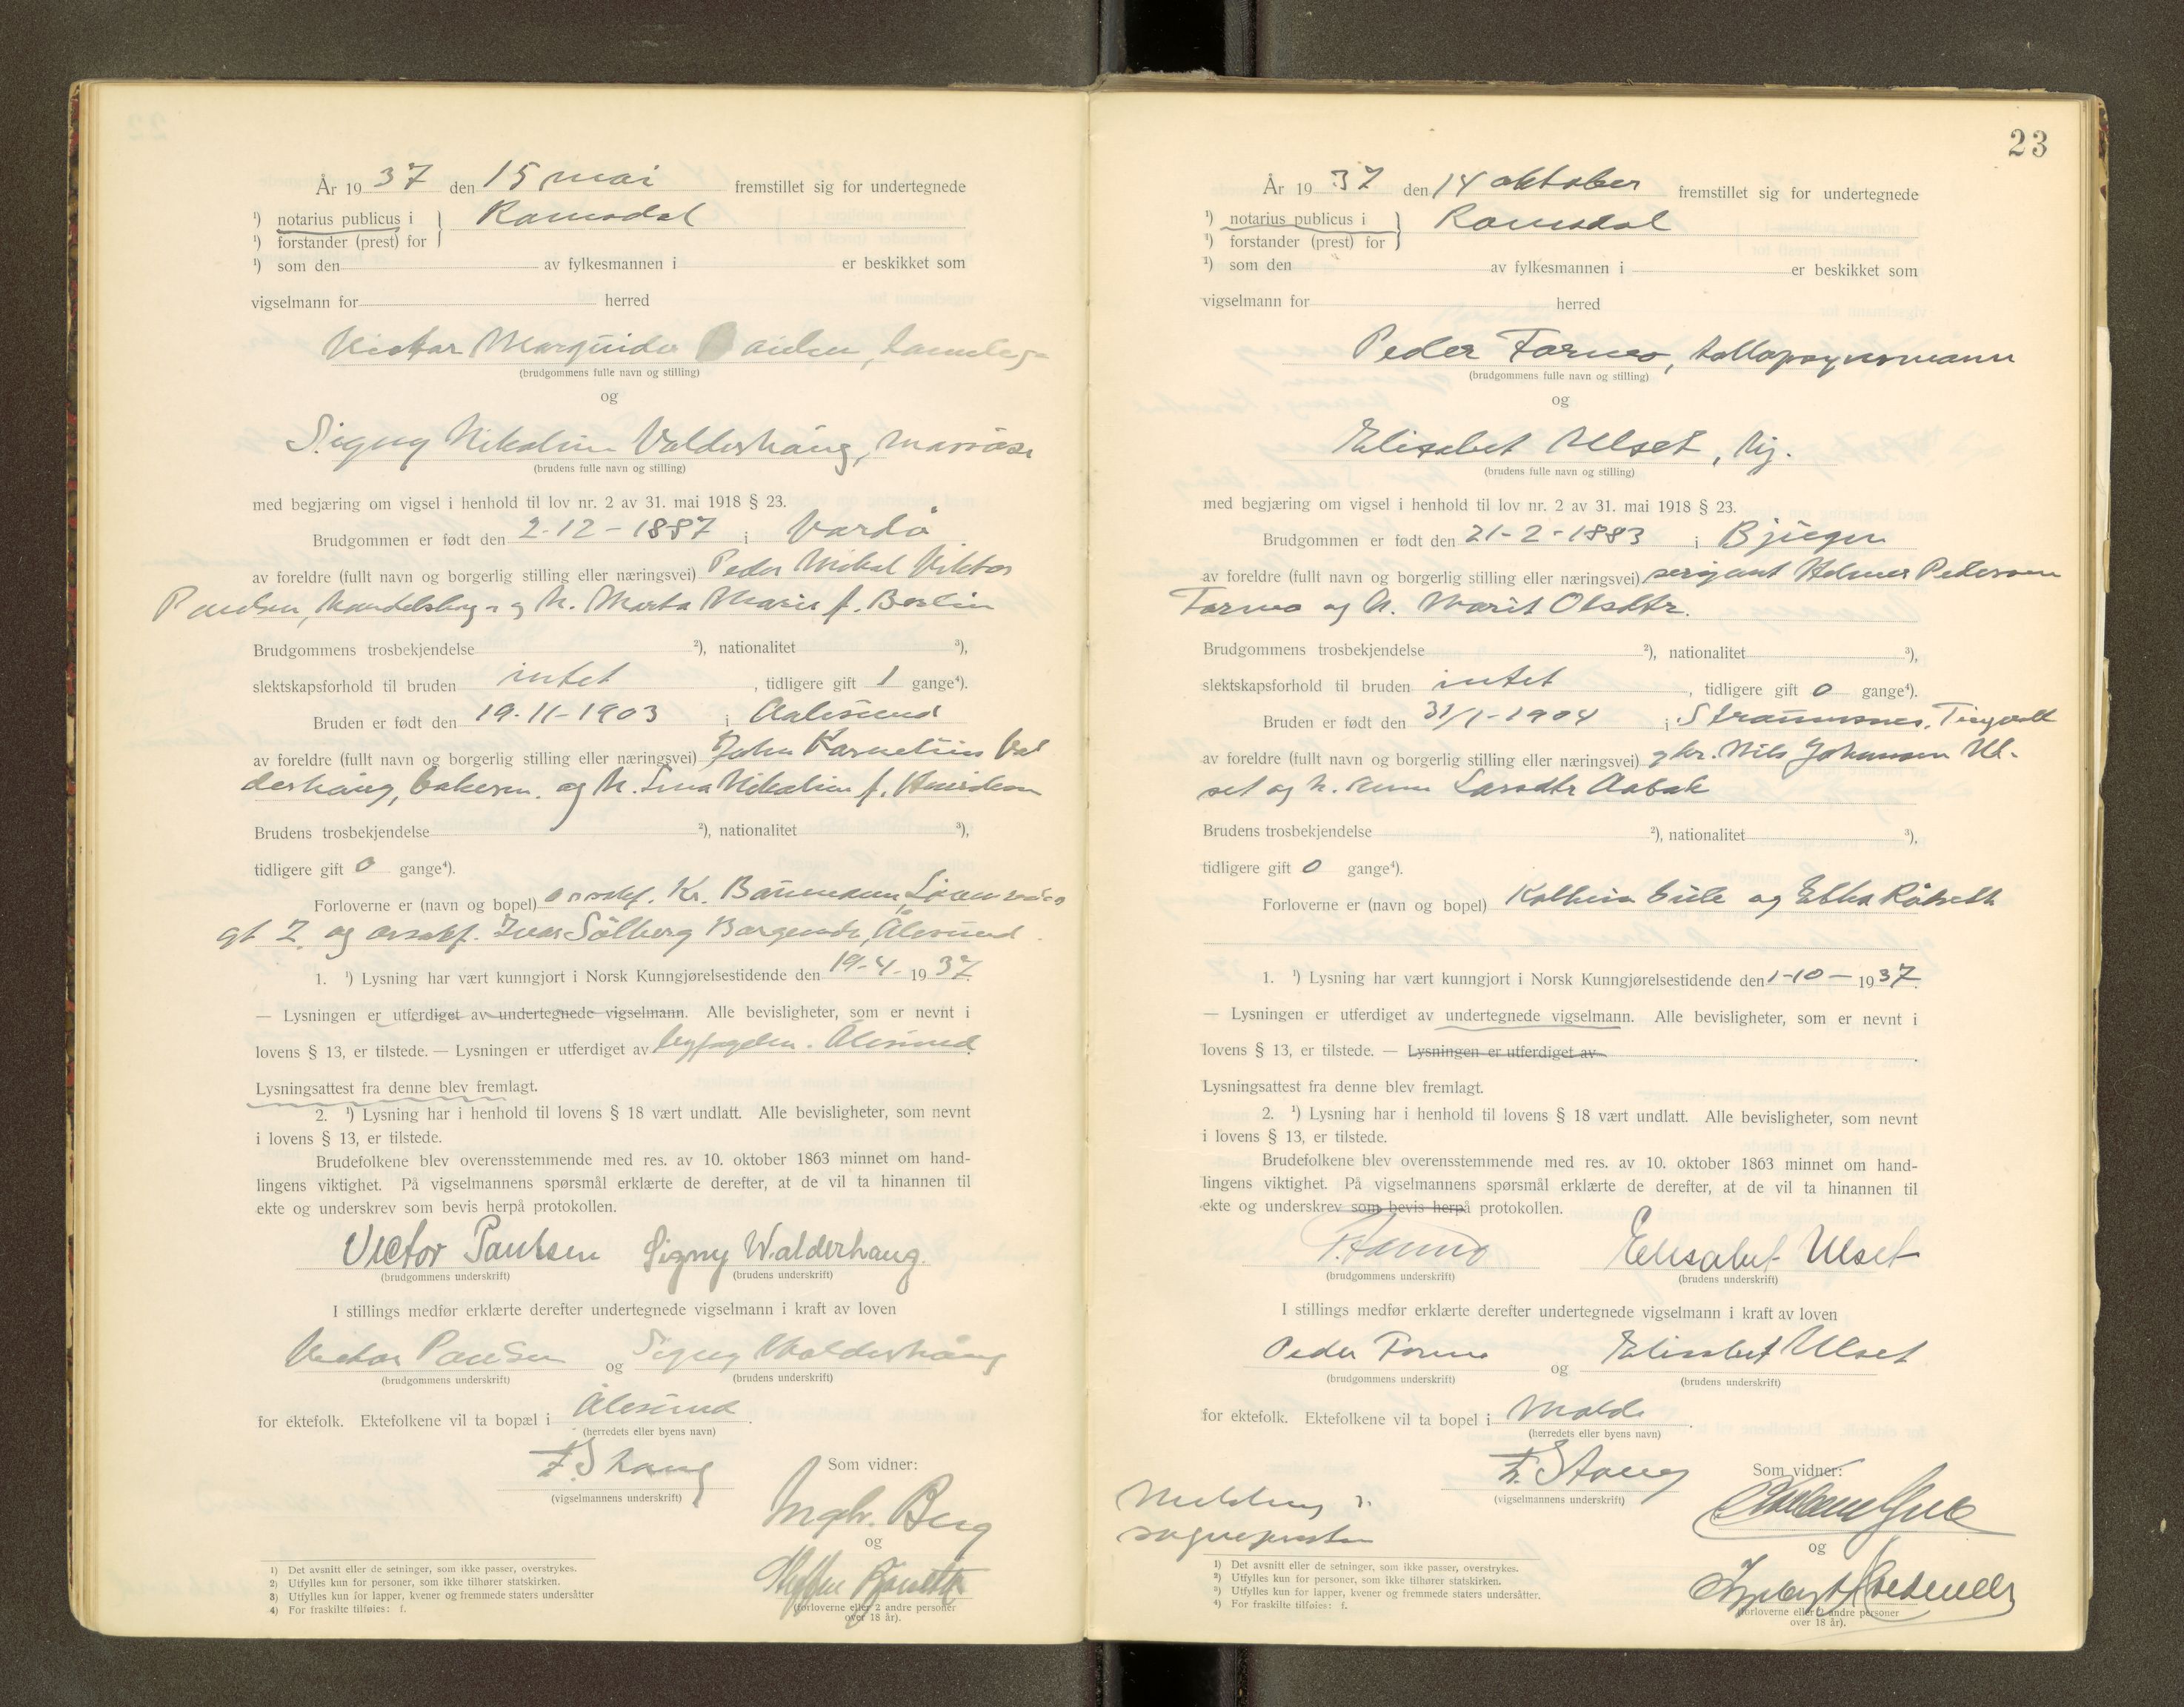 År 1937 den 15 mai fremstillet sig for undertegnede
¹) notarius publicus i } Romsdal
¹) forstander (prest) for
¹) som den av fylkesmannen i er beskikket som
vigselmann for herred
Victor
(brudgommens fulle navn og stilling)
og
Signy Nikoline Valderhaug, massøse
(brudens fulle navn og stilling)
med begjæring om vigsel i henhold til lov nr. 2 av 31. mai 1918 § 23.
Brudgommen er født den 2-12-1887 i Vardø
av foreldre (fullt navn og borgerlig stilling eller næringsvei) Peder Mikal Viktor
Paulsen, og h. Marta Marie f.
Brudgommens trosbekjendelse ²), nationalitet ³),
slektskapsforhold til bruden intet, tidligere gift 1 gange⁴).
Bruden er født den 19-11-1903 i Aalesund
av foreldre (fullt navn og borgerlig stilling eller næringsvei) John Kornelius Val
derhaug, og h. Nikoline f.
Brudens trosbekjendelse ²), nationalitet ³),
tidligere gift 0 gange⁴).
Forloverne er (navn og bopel) Kr.
gt 7 og Ivar Sølberg Borgund, Ålesund
1. ¹) Lysning har vært kunngjort i Norsk Kunngjørelsestidende den 19-4-1937.
— Lysningen er utferdiget av undertegnede vigselmann. Alle bevisligheter, som er nevnt i
lovens § 13, er tilstede. — Lysningen er utferdiget av byfogden. Ålesund.
Lysningsattest fra denne blev fremlagt.
2. ¹) Lysning har i henhold til lovens § 18 vært undlatt. Alle bevisligheter, som nevnt
i lovens § 13, er tilstede.
Brudefolkene blev overensstemmende med res. av 10. oktober 1863 minnet om hand-
lingens viktighet. På vigselmannens spørsmål erklærte de derefter, at de vil ta hinannen til
ekte og underskrev som bevis herpå protokollen.
Victor Paulsen Signy Walderhaug.
(brudgommens underskrift) (brudens underskrift)
I stillings medfør erklærte derefter undertegnede vigselmann i kraft av loven
Victor Paulsen og Signy Valderhaug
(brudgommens underskrift) (brudens underskrift)
for ektefolk. Ektefolkene vil ta bopæl i Ålesund.
(herredets eller byens navn)
F. Stang
(vigselmannens underskrift)
Som vidner:
Ingbr. Berg
og
(forloverne eller 2 andre personer
over 18 år).
1) Det avsnitt eller de setninger, som ikke passer, overstrykes.
2) Utfylles kun for personer, som ikke tilhører statskirken.
3) Utfylles kun for lapper, kvener og fremmede staters undersåtter
4) For fraskilte tilføies: f.
23
År 1937 den 14 oktober fremstillet sig for undertegnede
¹) notarius publicus i } Romsdal
¹) forstander (prest) for
¹) som den av fylkesmannen i er beskikket som
vigselmann for herred
Peder Formo, tolloppsynsmann
(brudgommens fulle navn og stilling)
og
Elisabet Ulset,
(brudens fulle navn og stilling)
med begjæring om vigsel i henhold til lov nr. 2 av 31. mai 1918 § 23.
Brudgommen er født den 21-2-1883 i Bjugn
av foreldre (fullt navn og borgerlig stilling eller næringsvei) sergeant Pedersen
Formo og h. Marit Olsdtr.
Brudgommens trosbekjendelse ²), nationalitet ³),
slektskapsforhold til bruden intet, tidligere gift 0 gange⁴).
Bruden er født den 31/1-1904 i Straumsnes, Tingvoll
av foreldre (fullt navn og borgerlig stilling eller næringsvei) gbr. Nils Johansen Ul-
set og h. Larsdtr Aabak
Brudens trosbekjendelse ²), nationalitet ³),
tidligere gift 0 gange⁴).
Forloverne er (navn og bopel) og Ebba
1. ¹) Lysning har vært kunngjort i Norsk Kunngjørelsestidende den 1-10-1937.
— Lysningen er utferdiget av undertegnede vigselmann. Alle bevisligheter, som er nevnt i
lovens § 13, er tilstede. — Lysningen er utferdiget av .
Lysningsattest fra denne blev fremlagt.
2. ¹) Lysning har i henhold til lovens § 18 vært undlatt. Alle bevisligheter, som nevnt
i lovens § 13, er tilstede.
Brudefolkene blev overensstemmende med res. av 10. oktober 1863 minnet om hand-
lingens viktighet. På vigselmannens spørsmål erklærte de derefter, at de vil ta hinannen til
ekte og underskrev som bevis herpå protokollen.
P. Formo Elisabet Ulset
(brudgommens underskrift) (brudens underskrift)
I stillings medfør erklærte derefter undertegnede vigselmann i kraft av loven
Peder Formo og Elisabet Ulset
(brudgommens underskrift) (brudens underskrift)
for ektefolk. Ektefolkene vil ta bopel i Molde.
(herredets eller byens navn)
F. Stang
(vigselmannens underskrift)
Som vidner:
og
(forloverne eller 2 andre personer
over 18 år).
Melding
sognepresten
1) Det avsnitt eller de setninger, som ikke passer, overstrykes.
2) Utfylles kun for personer, som ikke tilhører statskirken.
3) Utfylles kun for lapper, kvener og fremmede staters undersåtter.
4) For fraskilte tilføies: f.